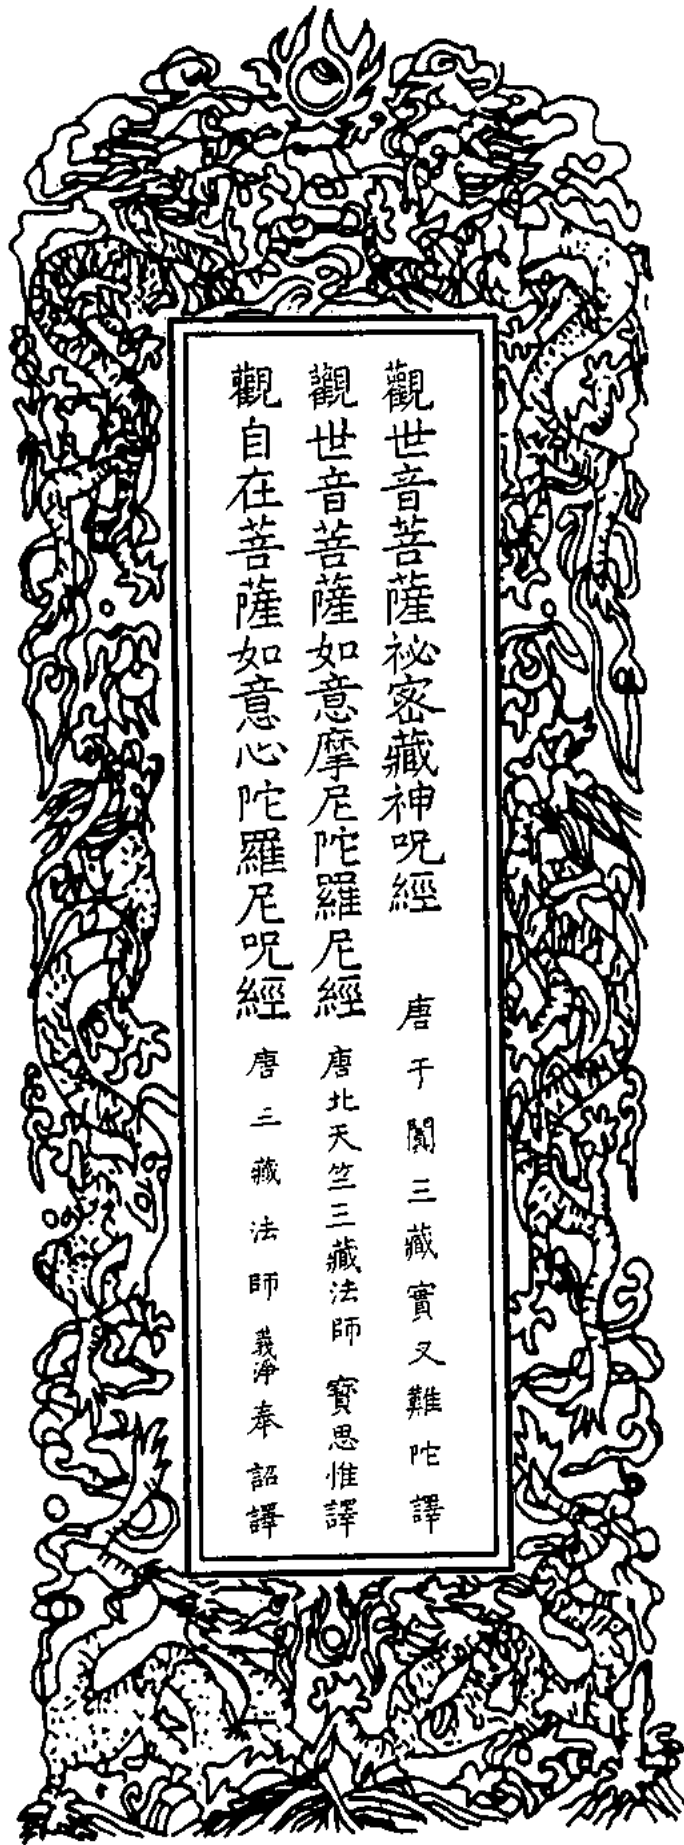 觀世音菩薩祕密藏神呪經 唐于闐三藏實叉難陀譯
觀世音菩薩如意摩尼陀羅尼經 唐北天竺三藏法師 寶思惟譯
觀自在菩薩如意心陀羅尼呪經 唐三藏法師 義淨奉詔譯